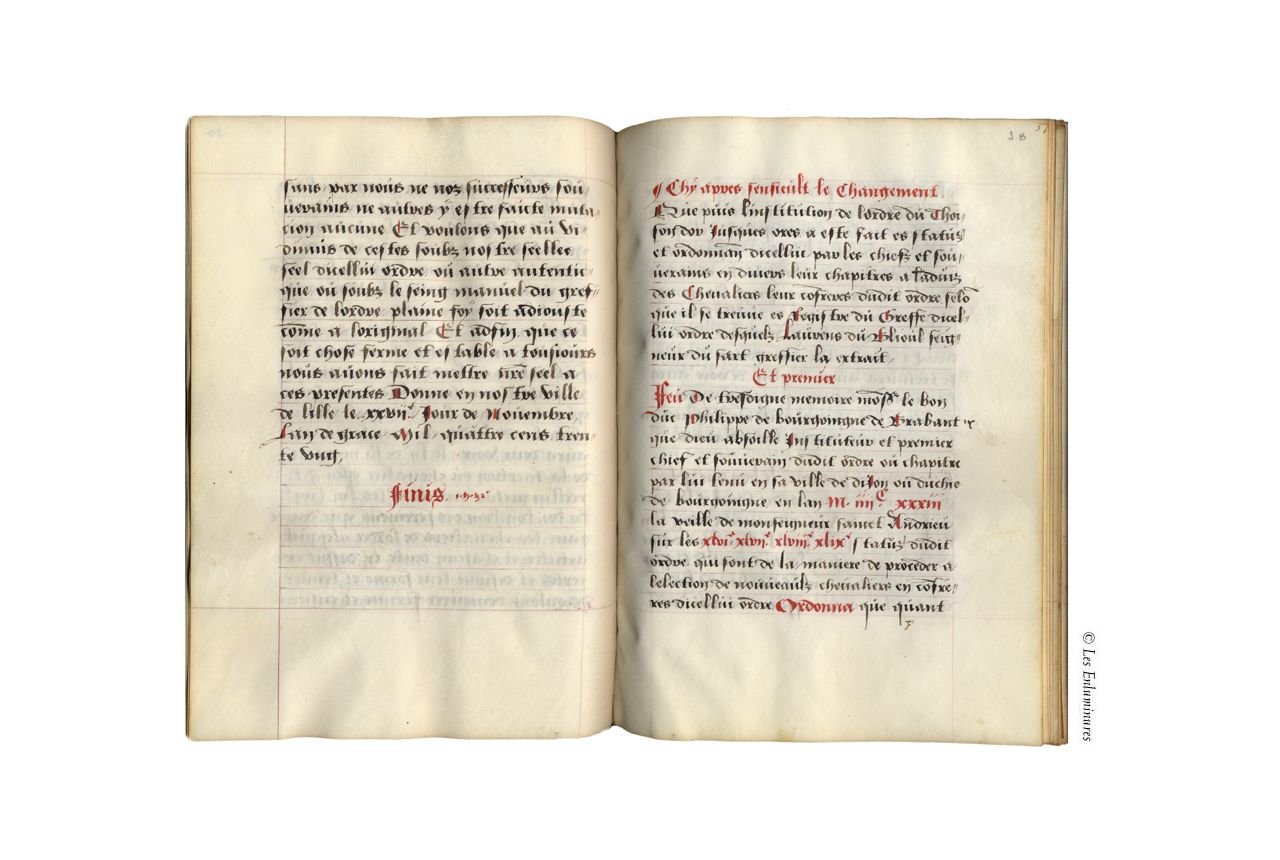 sans par nous ne noz successeurs sou
uerains ne autres y estre faicte muta
cion aucune Et voulons que au vi
dimus de cestes soubz nostre seelles
seel dicellui ordre ou autre autentic
que ou soubz le seing manuel du gref
fier de lordre plaine foy soit adiouste
cōme a loriginal Et adfin que ce
soit chose ferme et estable a tousiours
nous auons fait mettre nrē seel a
ces presentes Donne en nostre ville
de lille le xxviiᵉ Jour de Nouembre
Lan de grace Mil quattre cens tren
te vng
Finis
38
37
¶ Chy apres sensieult le Changement
Que puis linstitution de lordre du Thoi
son dor Jusques ores a este fait es statuz
et ordonnan dicellui par les chiefz et sou
uerains en diuers leur chapitres a laduiz
des Cheualiers leur cōfreres dudit ordre selō
que il se treuue es Registre du Greffe dicel
lui ordre desquelz Laurens du Blioul seig
neur du sart greffier la extrait
Et premier
Feu De tresdigne memoire monsʳ le bon
duc Philippe de bourgoingne de Brabant
que dieu absoille Instituteur et premier
chief et souuerain dudit ordre ou chapitre
par lui tenu en sa ville de diJon ou duchie
de bourgoingne en lan M iiiiᶜ xxxiii
la veille de monseigneur sainct Andrieu
sur les xlviᵉ xlviiᵉ xlviiiᵉ xlixᵉ statuz dudit
ordre qui font de la maniere de proceder a
lelection de nouueaulx cheualiers en cōfre
res dicellui ordre Ordonna que quant
F
© Les Enluminures